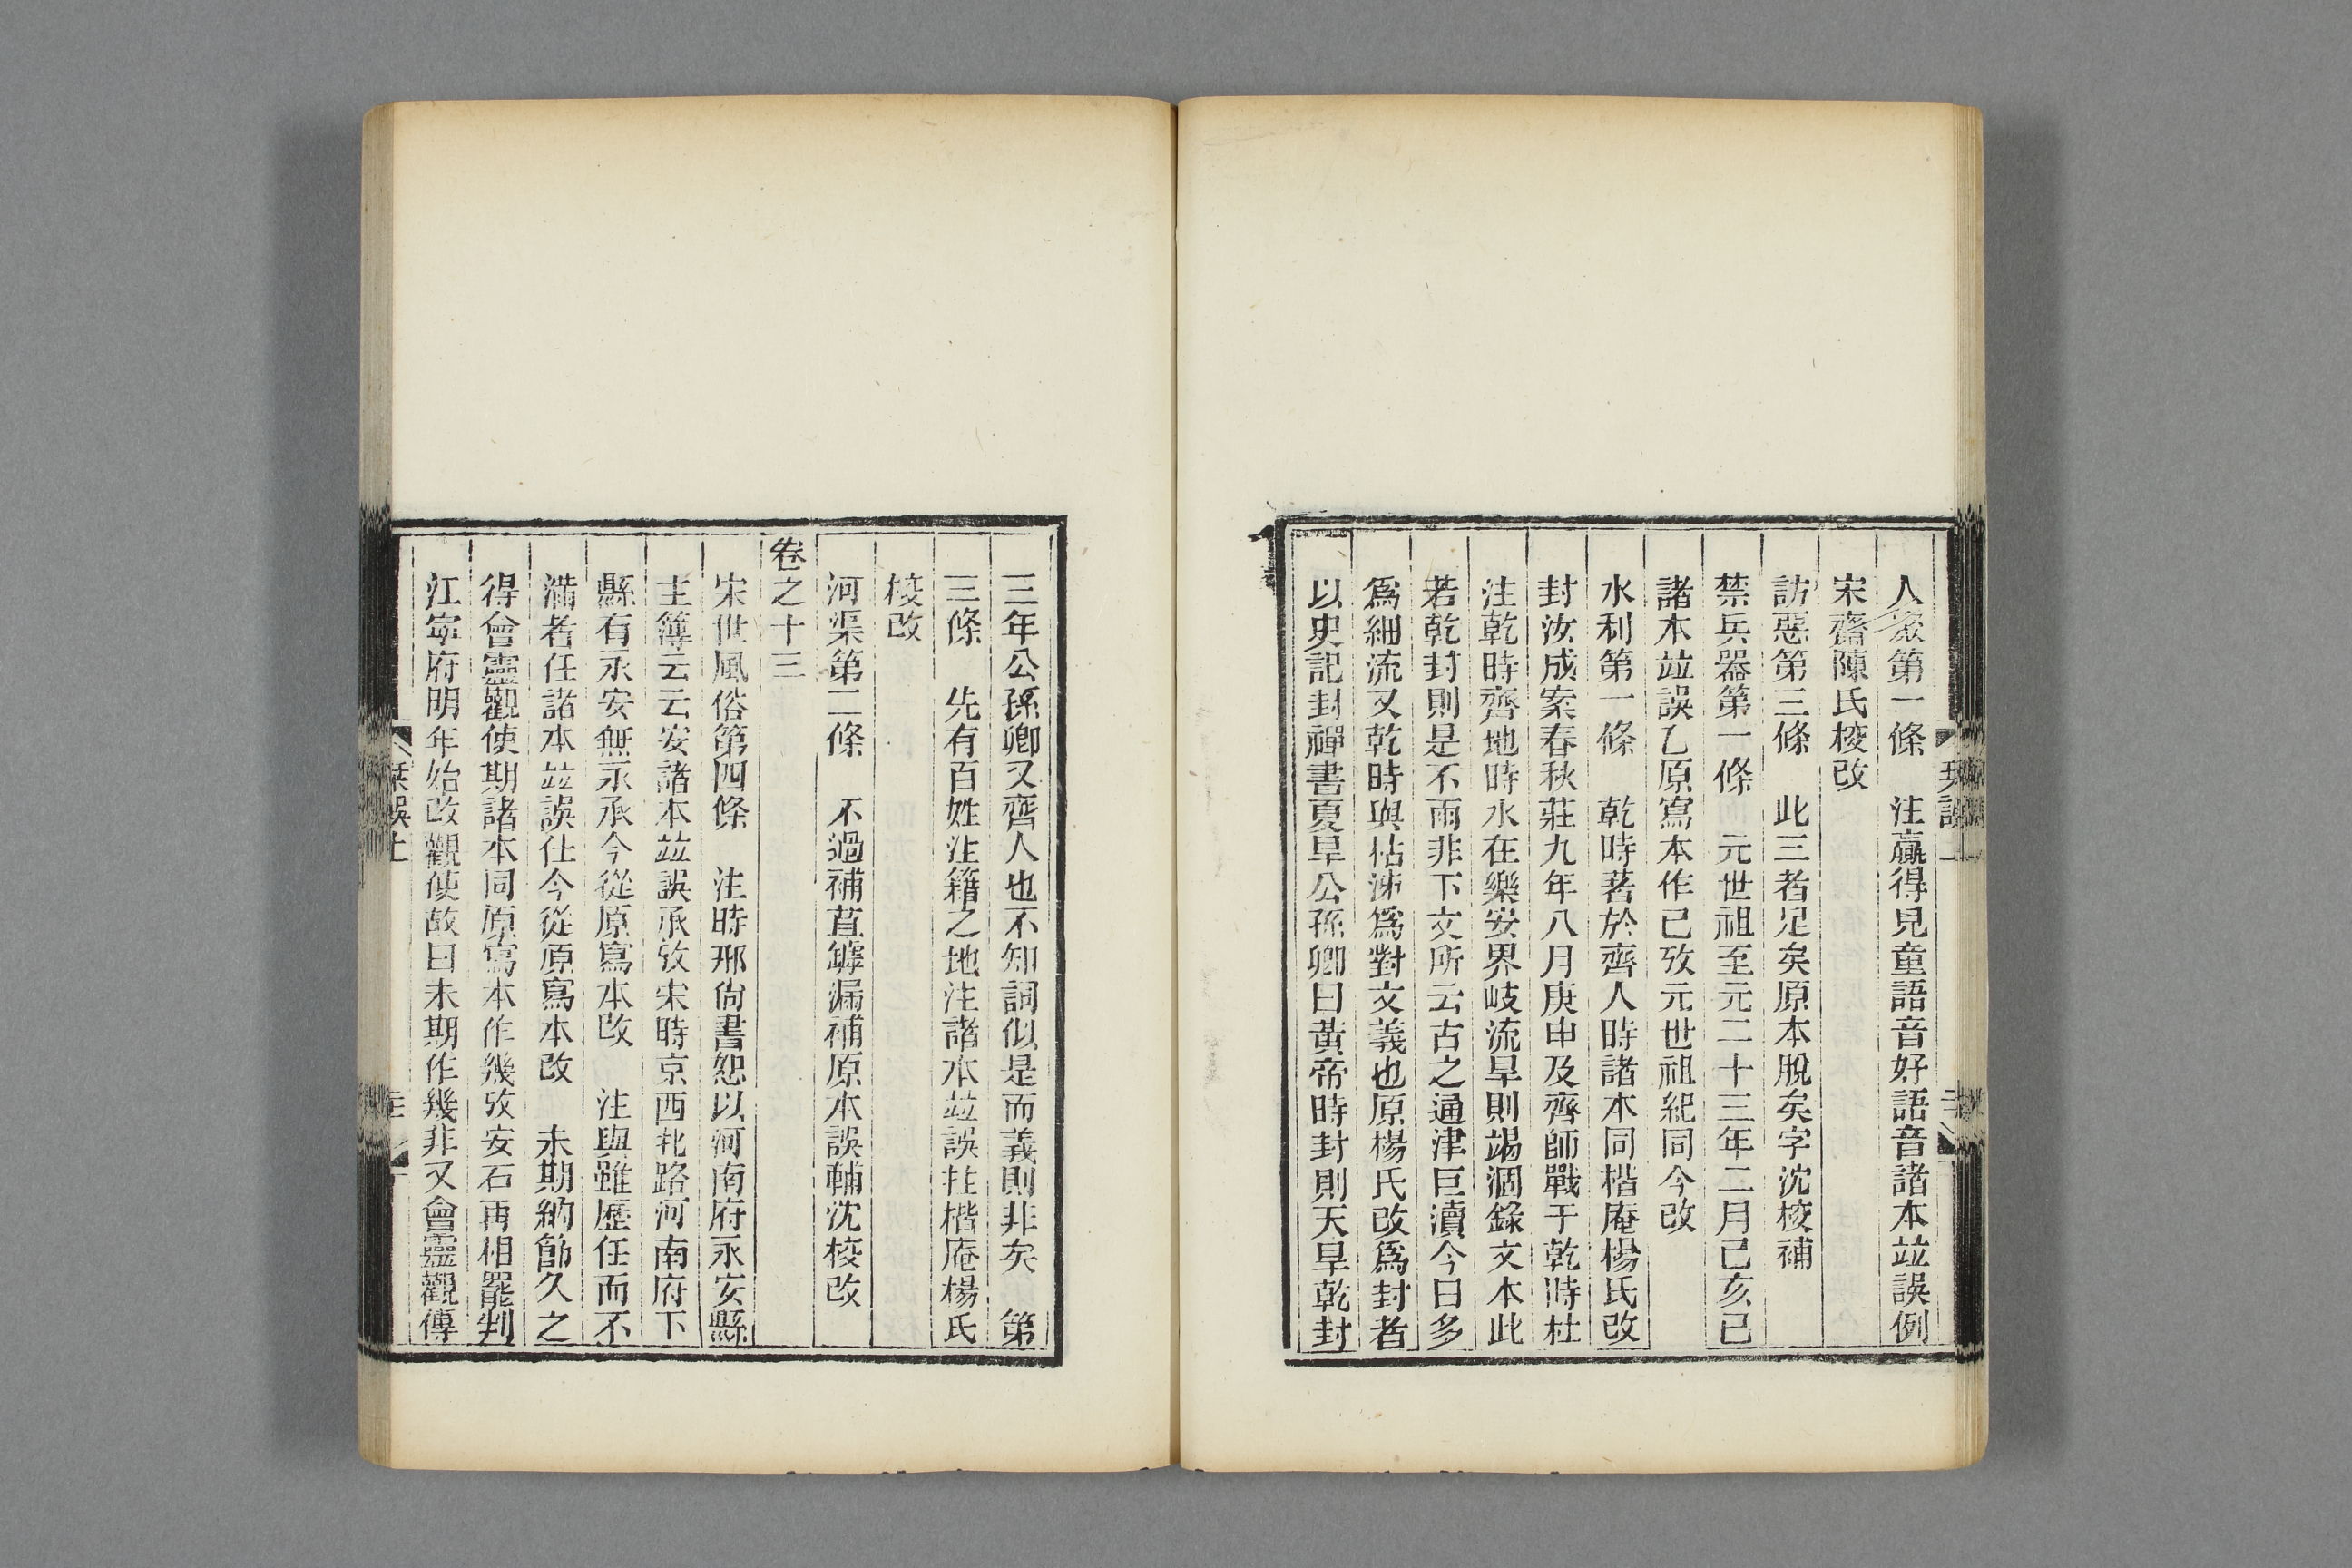 人聚第一條　注贏得兒童語音好語音諸本竝誤例
宋齋陳氏校改
訪惡第三條　此三者足矣原本脫矣字沈校補
禁兵器第一條　元世祖至元二十三年二月己亥己
諸本竝誤乙原寫本作己攷元世祖紀同今改
水利第一條　乾時著於齊人時諸本同楷庵楊氏改
封汝成案春秋莊九年八月庚申及齊師戰于乾時杜
注乾時齊地時水在樂安界岐流旱則竭涸錄文本此
若乾封則是不雨非下文所云古之通津巨瀆今日多
爲細流又乾時與枯涑爲對文義也原楊氏改爲封者
以史記封禪書夏旱公孫卿曰黃帝時封則天旱乾封
三年公孫卿又齊人也不知詞似是而義則非矣　第
三條　先有百姓注籍之地注諸本竝誤拄楷庵楊氏
校改
河渠第二條　不過補苴罅漏補原本誤輔沈校改
卷之十三
宋世風俗第四條　注時邢尙書恕以河南府永安縣
主簿云云安諸本竝誤承攷宋時京西北路河南府下
縣有永安無永承今從原寫本改　注與雖歷任而不
滿者任諸本竝誤仕今從原寫本改　未期納節久之
得會靈觀使期諸本同原寫本作幾攷安石再相罷判
江寧府明年始改觀使故曰未期作幾非又會靈觀傳
刊誤上